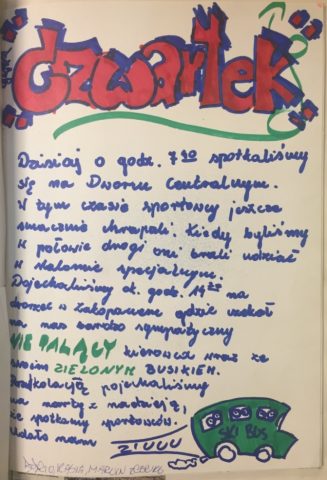 czwartek
Dzisiaj o godz. 7³⁰ spotkaliśmy
się na Dworcu Centralnym.
W tym czasie sportowcy jeszcze
smacznie chrapali. Kiedy byliśmy
w połowie drogi oni brali udział
w slalomie specjalnym.
Dojechaliśmy ok. godz. 14²⁵ na
dworzec w Zakopanem gdzie czekał
na nas bardzo sympatyczny
NIE PALĄCY kierowca wraz ze
swoim ZIELONYM BUSIKIEM.
pojechaliśmy
na narty z nadzieją,
że spotkamy sportowców.
Udało nam
ZIUUU
SKI BUS